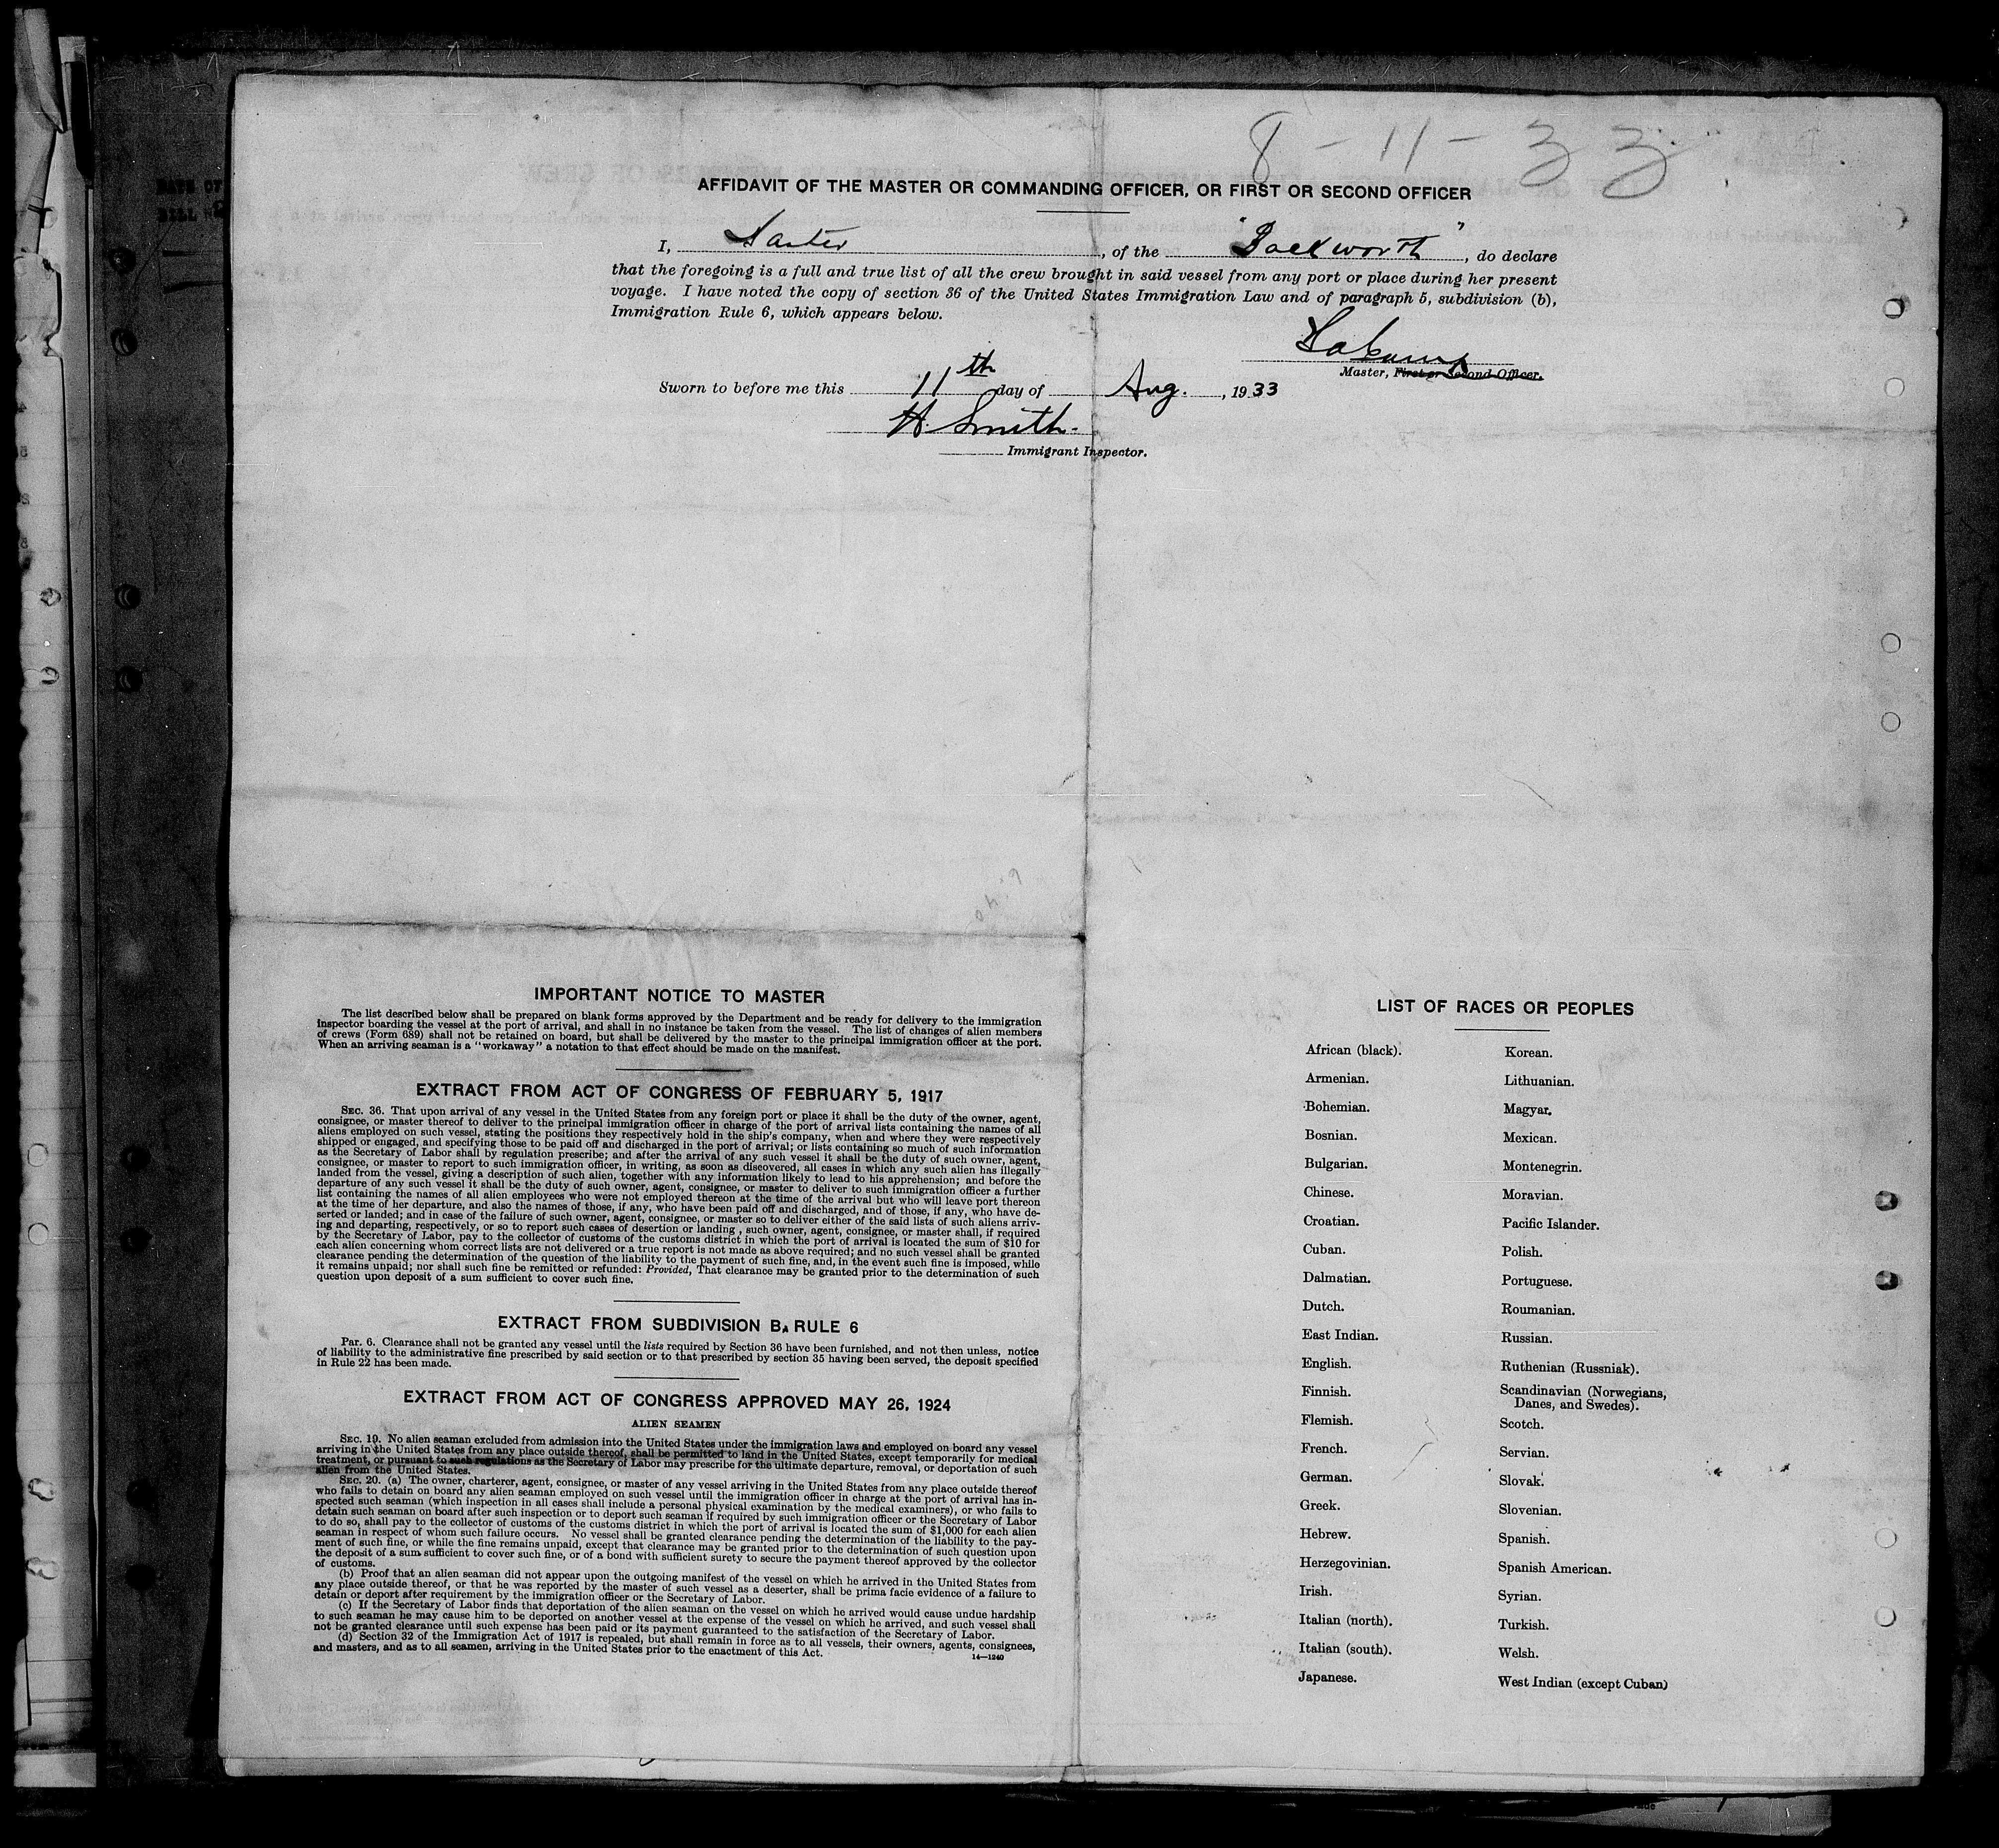 8 - 11 - 33
AFFIDAVIT OF THE MASTER OR COMMANDING OFFICER, OR FIRST OR SECOND OFFICER
I, , of the " ", do declare
that the foregoing is a full and true list of all the crew brought in said vessel from any port or place during her present
voyage. I have noted the copy of section 36 of the United States Immigration Law and of paragraph 5, subdivision (b),
Immigration Rule 6, which appears below.
Master, First or Second Officer.
Sworn to before me this 11th day of Aug. , 1933
H. Smith.
Immigrant Inspector.
IMPORTANT NOTICE TO MASTER
The list described below shall be prepared on blank forms approved by the Department and be ready for delivery to the immigration
inspector boarding the vessel at the port of arrival, and shall in no instance be taken from the vessel. The list of changes of alien members
of crews (Form 689) shall not be retained on board, but shall be delivered by the master to the principal immigration officer at the port.
When an arriving seaman is a "workaway" a notation to that effect should be made on the manifest.
EXTRACT FROM ACT OF CONGRESS OF FEBRUARY 5, 1917
SEC. 36. That upon arrival of any vessel in the United States from any foreign port or place it shall be the duty of the owner, agent,
consignee, or master thereof to deliver to the principal immigration officer in charge of the port of arrival lists containing the names of all
aliens employed on such vessel, stating the positions they respectively hold in the ship's company, when and where they were respectively
shipped or engaged, and specifying those to be paid off and discharged in the port of arrival; or lists containing so much of such information
as the Secretary of Labor shall by regulation prescribe; and after the arrival of any such vessel it shall be the duty of such owner, agent,
consignee, or master to report to such immigration officer, in writing, as soon as discovered, all cases in which any such alien has illegally
landed from the vessel, giving a description of such alien, together with any information likely to lead to his apprehension; and before the
departure of any such vessel it shall be the duty of such owner, agent, consignee, or master to deliver to such immigration officer a further
list containing the names of all alien employees who were not employed thereon at the time of the arrival but who will leave port thereon
at the time of her departure, and also the names of those, if any, who have been paid off and discharged, and of those, if any, who have de-
serted or landed; and in case of the failure of such owner, agent, consignee, or master so to deliver either of the said lists of such aliens arriv-
ing and departing, respectively, or so to report such cases of desertion or landing , such owner, agent, consignee, or master shall, if required
by the Secretary of Labor, pay to the collector of customs of the customs district in which the port of arrival is located the sum of $10 for
each alien concerning whom correct lists are not delivered or a true report is not made as above required; and no such vessel shall be granted
clearance pending the determination of the question of the liability to the payment of such fine, and, in the event such fine is imposed, while
it remains unpaid; nor shall such fine be remitted or refunded: Provided, That clearance may be granted prior to the determination of such
question upon deposit of a sum sufficient to cover such fine.
EXTRACT FROM SUBDIVISION B, RULE 6
Par. 6. Clearance shall not be granted any vessel until the lists required by Section 36 have been furnished, and not then unless, notice
of liability to the administrative fine prescribed by said section or to that prescribed by section 35 having been served, the deposit specified
in Rule 22 has been made.
EXTRACT FROM ACT OF CONGRESS APPROVED MAY 26, 1924
ALIEN SEAMEN
SEC. 19. No alien seaman excluded from admission into the United States under the immigration laws and employed on board any vessel
arriving in the United States from any place outside thereof, shall be permitted to land in the United States, except temporarily for medical
treatment, or pursuant to such regulations as the Secretary of Labor may prescribe for the ultimate departure, removal, or deportation of such
alien from the United States.
SEC. 20. (a) The owner, charterer, agent, consignee, or master of any vessel arriving in the United States from any place outside thereof
who fails to detain on board any alien seaman employed on such vessel until the immigration officer in charge at the port of arrival has in-
spected such seaman (which inspection in all cases shall include a personal physical examination by the medical examiners), or who fails to
detain such seaman on board after such inspection or to deport such seaman if required by such immigration officer or the Secretary of Labor
to do so, shall pay to the collector of customs of the customs district in which the port of arrival is located the sum of $1,000 for each alien
seaman in respect of whom such failure occurs. No vessel shall be granted clearance pending the determination of the liability to the pay-
ment of such fine, or while the fine remains unpaid, except that clearance may be granted prior to the determination of such question upon
the deposit of a sum sufficient to cover such fine, or of a bond with sufficient surety to secure the payment thereof approved by the collector
of customs.
(b) Proof that an alien seaman did not appear upon the outgoing manifest of the vessel on which he arrived in the United States from
any place outside thereof, or that he was reported by the master of such vessel as a deserter, shall be prima facie evidence of a failure to
detain or deport after requirement by the immigration officer or the Secretary of Labor.
(c) If the Secretary of Labor finds that deportation of the alien seaman on the vessel on which he arrived would cause undue hardship
to such seaman he may cause him to be deported on another vessel at the expense of the vessel on which he arrived, and such vessel shall
not be granted clearance until such expense has been paid or its payment guaranteed to the satisfaction of the Secretary of Labor.
(d) Section 32 of the Immigration Act of 1917 is repealed, but shall remain in force as to all vessels, their owners, agents, consignees,
and masters, and as to all seamen, arriving in the United States prior to the enactment of this Act.
14—1240
LIST OF RACES OR PEOPLES
African (black).
Armenian.
Bohemian.
Bosnian.
Bulgarian.
Chinese.
Croatian.
Cuban.
Dalmatian.
Dutch.
East Indian.
English.
Finnish.
Flemish.
French.
German.
Greek.
Hebrew.
Herzegovinian.
Irish.
Italian (north).
Italian (south).
Japanese.
Korean.
Lithuanian.
Magyar.
Mexican.
Montenegrin.
Moravian.
Pacific Islander.
Polish.
Portuguese.
Roumanian.
Russian.
Ruthenian (Russniak).
Scandinavian (Norwegians,
Danes, and Swedes).
Scotch.
Servian.
Slovak.
Slovenian.
Spanish.
Spanish American.
Syrian.
Turkish.
Welsh.
West Indian (except Cuban)